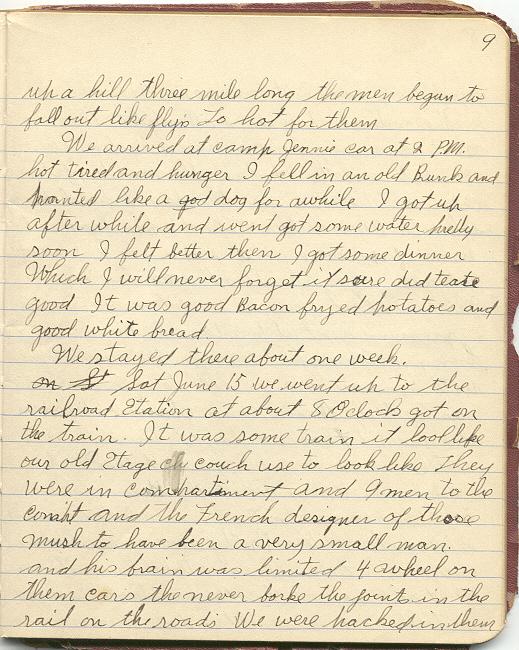 9
up a hill three mile long the men began to
fall out like fly's To hot for them
We arrived at camp Jennie car at 2 P.M.
hot tired and hunger I fell in an old Bunk and
panted like a god dog for awhile I got up
after while and went got some water pretty
soon I felt better then I got some dinner
Which I will never forget it sure did teaste
good It was good Bacon fryed potatoes and
good white bread
We stayed there about one week.
on St Sat June 15 we went up to the
railroad Station at about 8 Oclock got on
the train. It was some train it lool like
our old Stage ch couch use to look like They
were in compartiment and 9 men to the
compt and the French designer of those
mush to have been a very small man.
and his brain was limited 4 wheel on
them cars the never borke the joint in the
rail on the roads We were packed in them